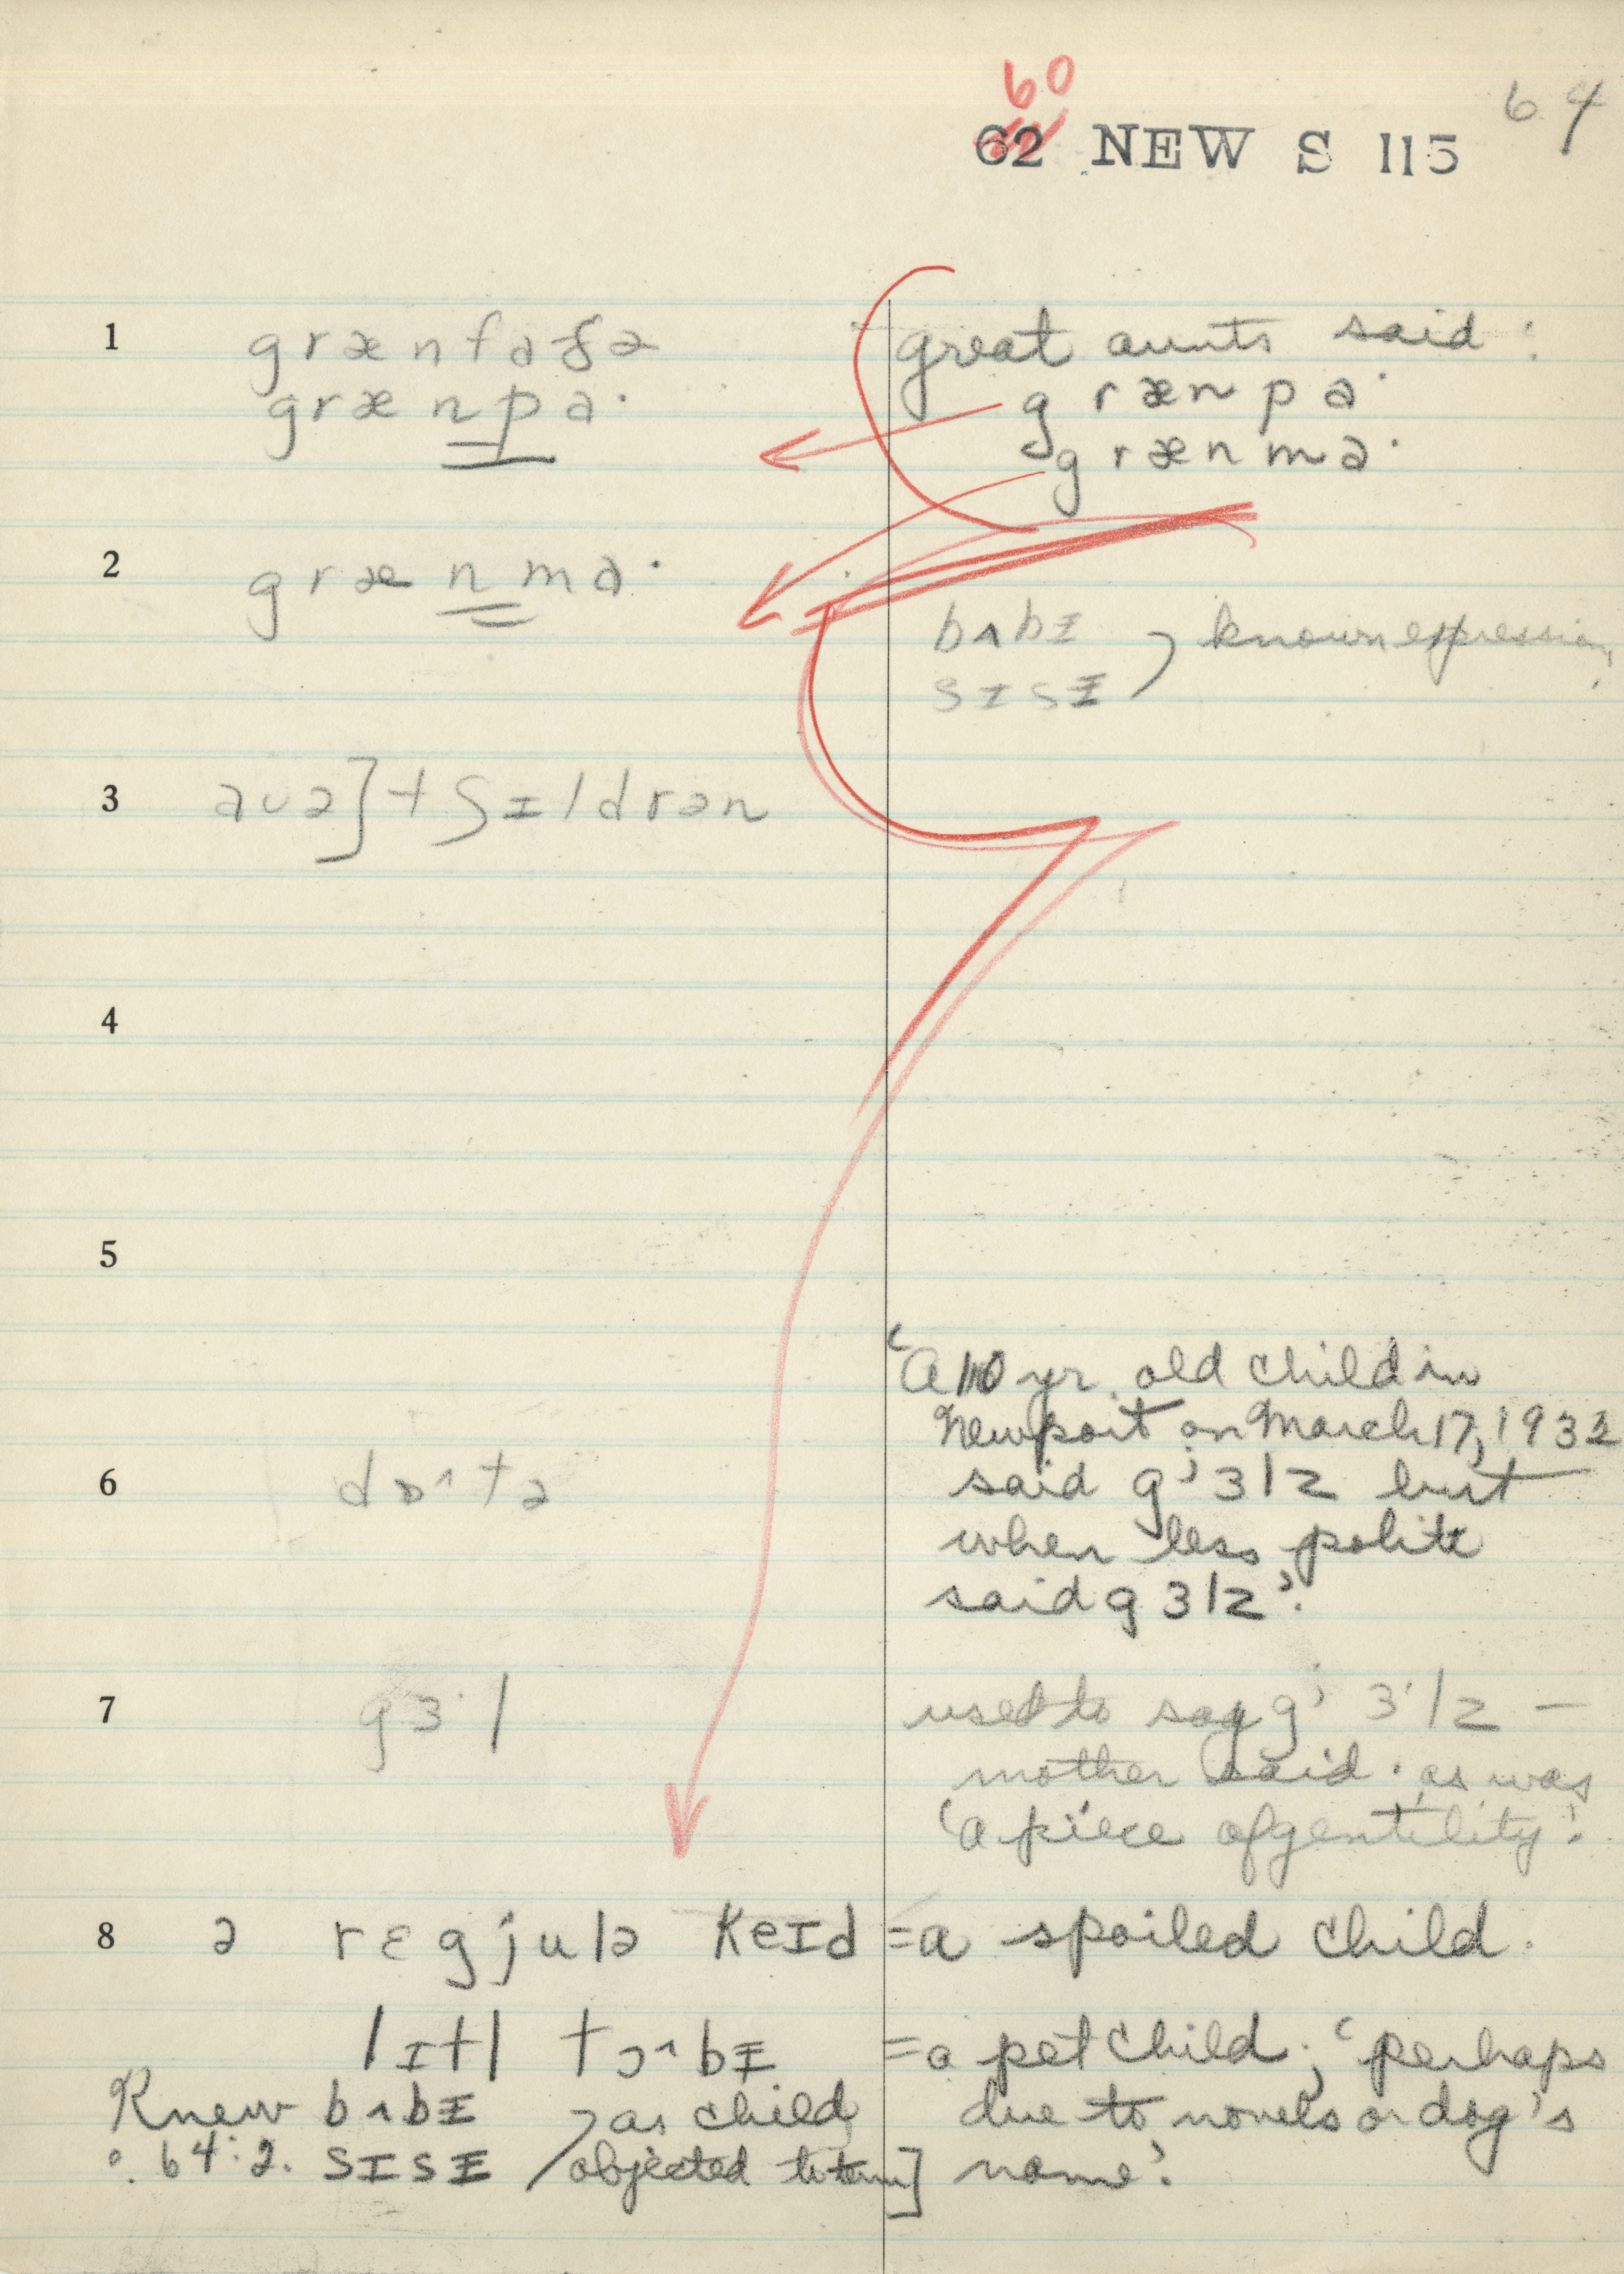 60
62 NEW S 115 64
1 grænfaðə great aunts said:
grænpa· grænpa·
grænma·
2 grænma·
bʌbɪ ) known expression
sɪsɪ
3 auə] tʃɪldrən
4
5
'A 10 yr. old child in
Newport on March 17, 1932
6 dɒˆtə said gʲɜlz but
when less polite
said gɜlz'.
7 gɜ·l used to say gʲɜ·lz —
mother said. as was
'a piece of gentility'.
8 ə rɛgjulə keɪd =a spoiled child.
lɪtl tɔˆbɪ =a pet child; 'perhaps
Knew bʌbɪ ) as child due to novels or dog's
: 64:2. sɪsɪ / objected to term] name'.